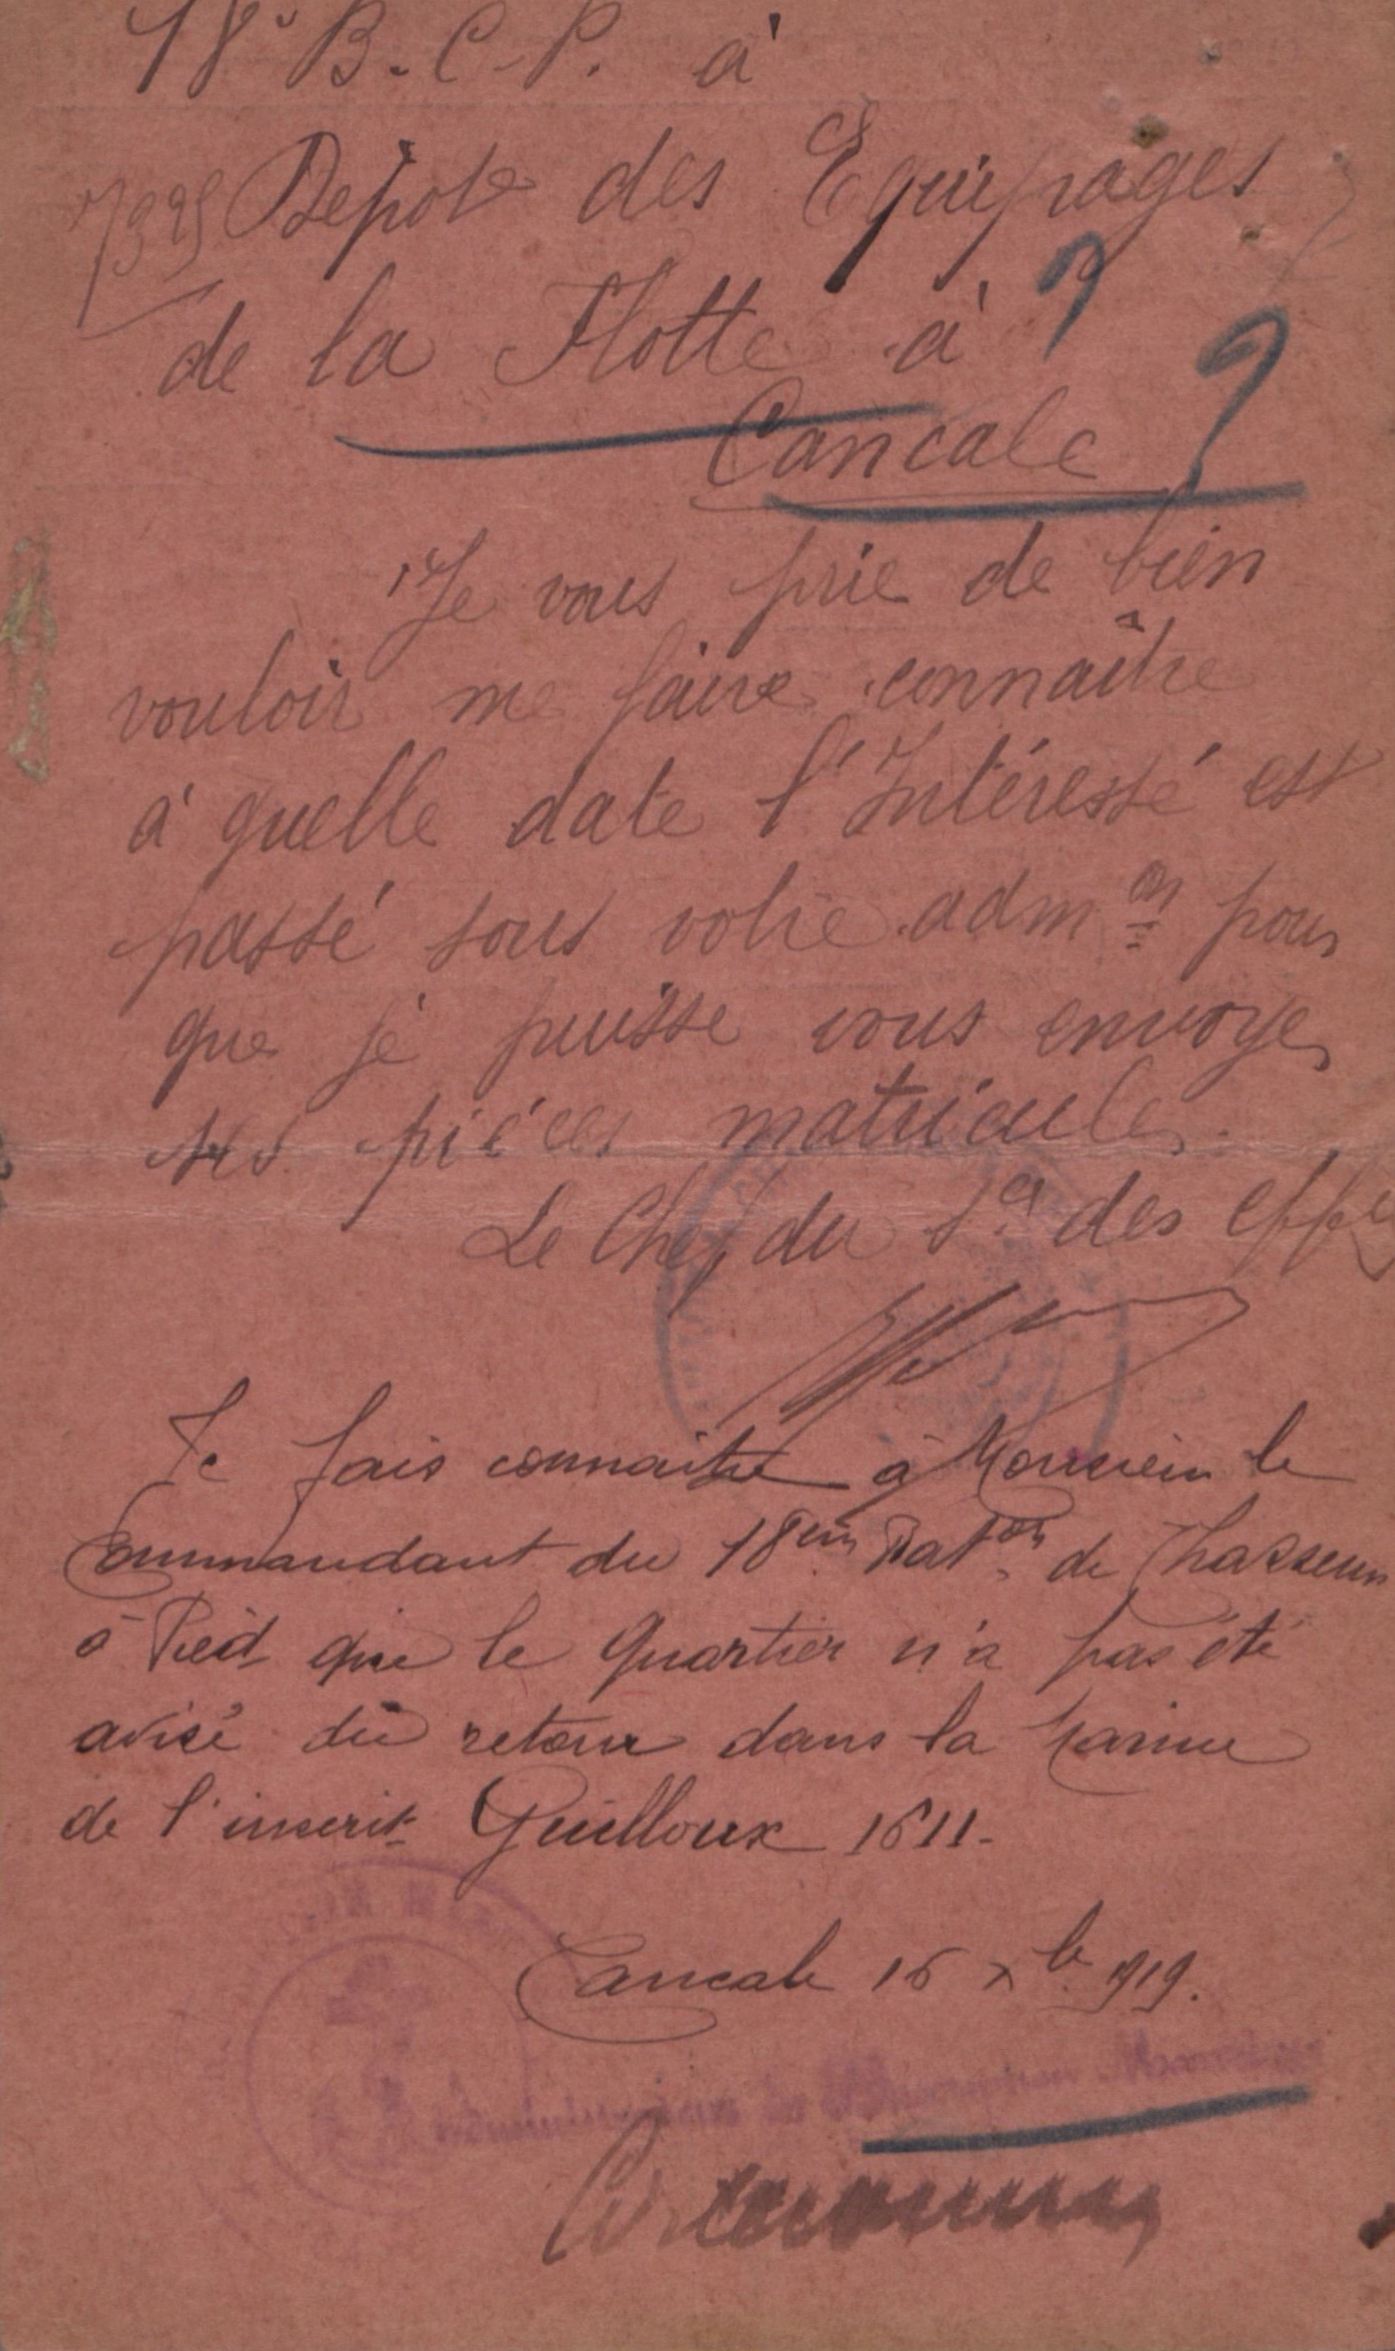 18e B.C.P. à
Dépôt des Equipages
de la Flotte à
Cancale
Je vous prie de bien
vouloir me faire connaître
à quelle date l'Intéressé est
passé sous votre admon pour
que je puisse vous envoyer
ses pièces matricules.
Le Chef du des eff
Je fais connaître à Monsieur le
Commandant du 18ème Baton de Chasseurs
à Pied que le Quartier n'a pas été
avisé du retour dans la Marine
de l'inscrit Guilloux 1611-
Cancale 16 xbre 919.
L'Administrateur de l'Inscription Maritime